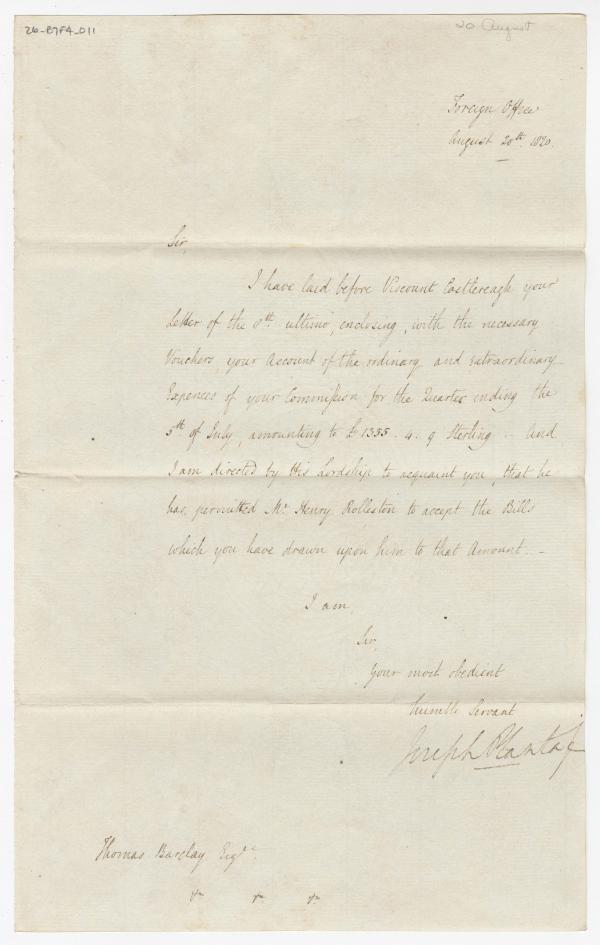 26-B7F4_011
20 August
Foreign Office
August 20th. 1820.
Sir,
I have laid before Viscount Castlereagh your
Letter of the 8th. ultimo, enclosing, with the necessary
Vouchers, your Account of the ordinary and extraordinary
Expences of your Commission for the Quarter ending the
5th of July, amounting to £1335. 4. 9 Sterling. - And
I am directed by His Lordship to acquaint you, that he
has permitted Mr. Henry Rolleston to accept the Bills
which you have drawn upon him to that Amount. -
I am,
Sir,
Your most obedient
humble Servant
Joseph Planta Jr
Thomas Barclay Esqre.